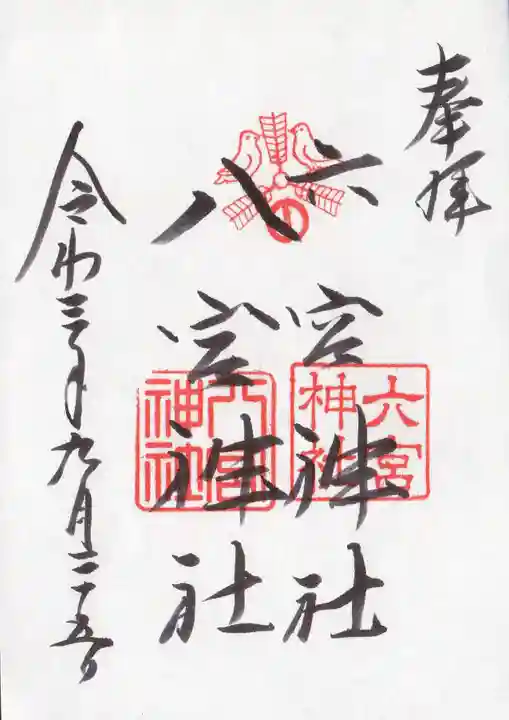 奉拝
六宮神社
八宮神社
令和三年九月二十五日
六宮神社
八宮神社